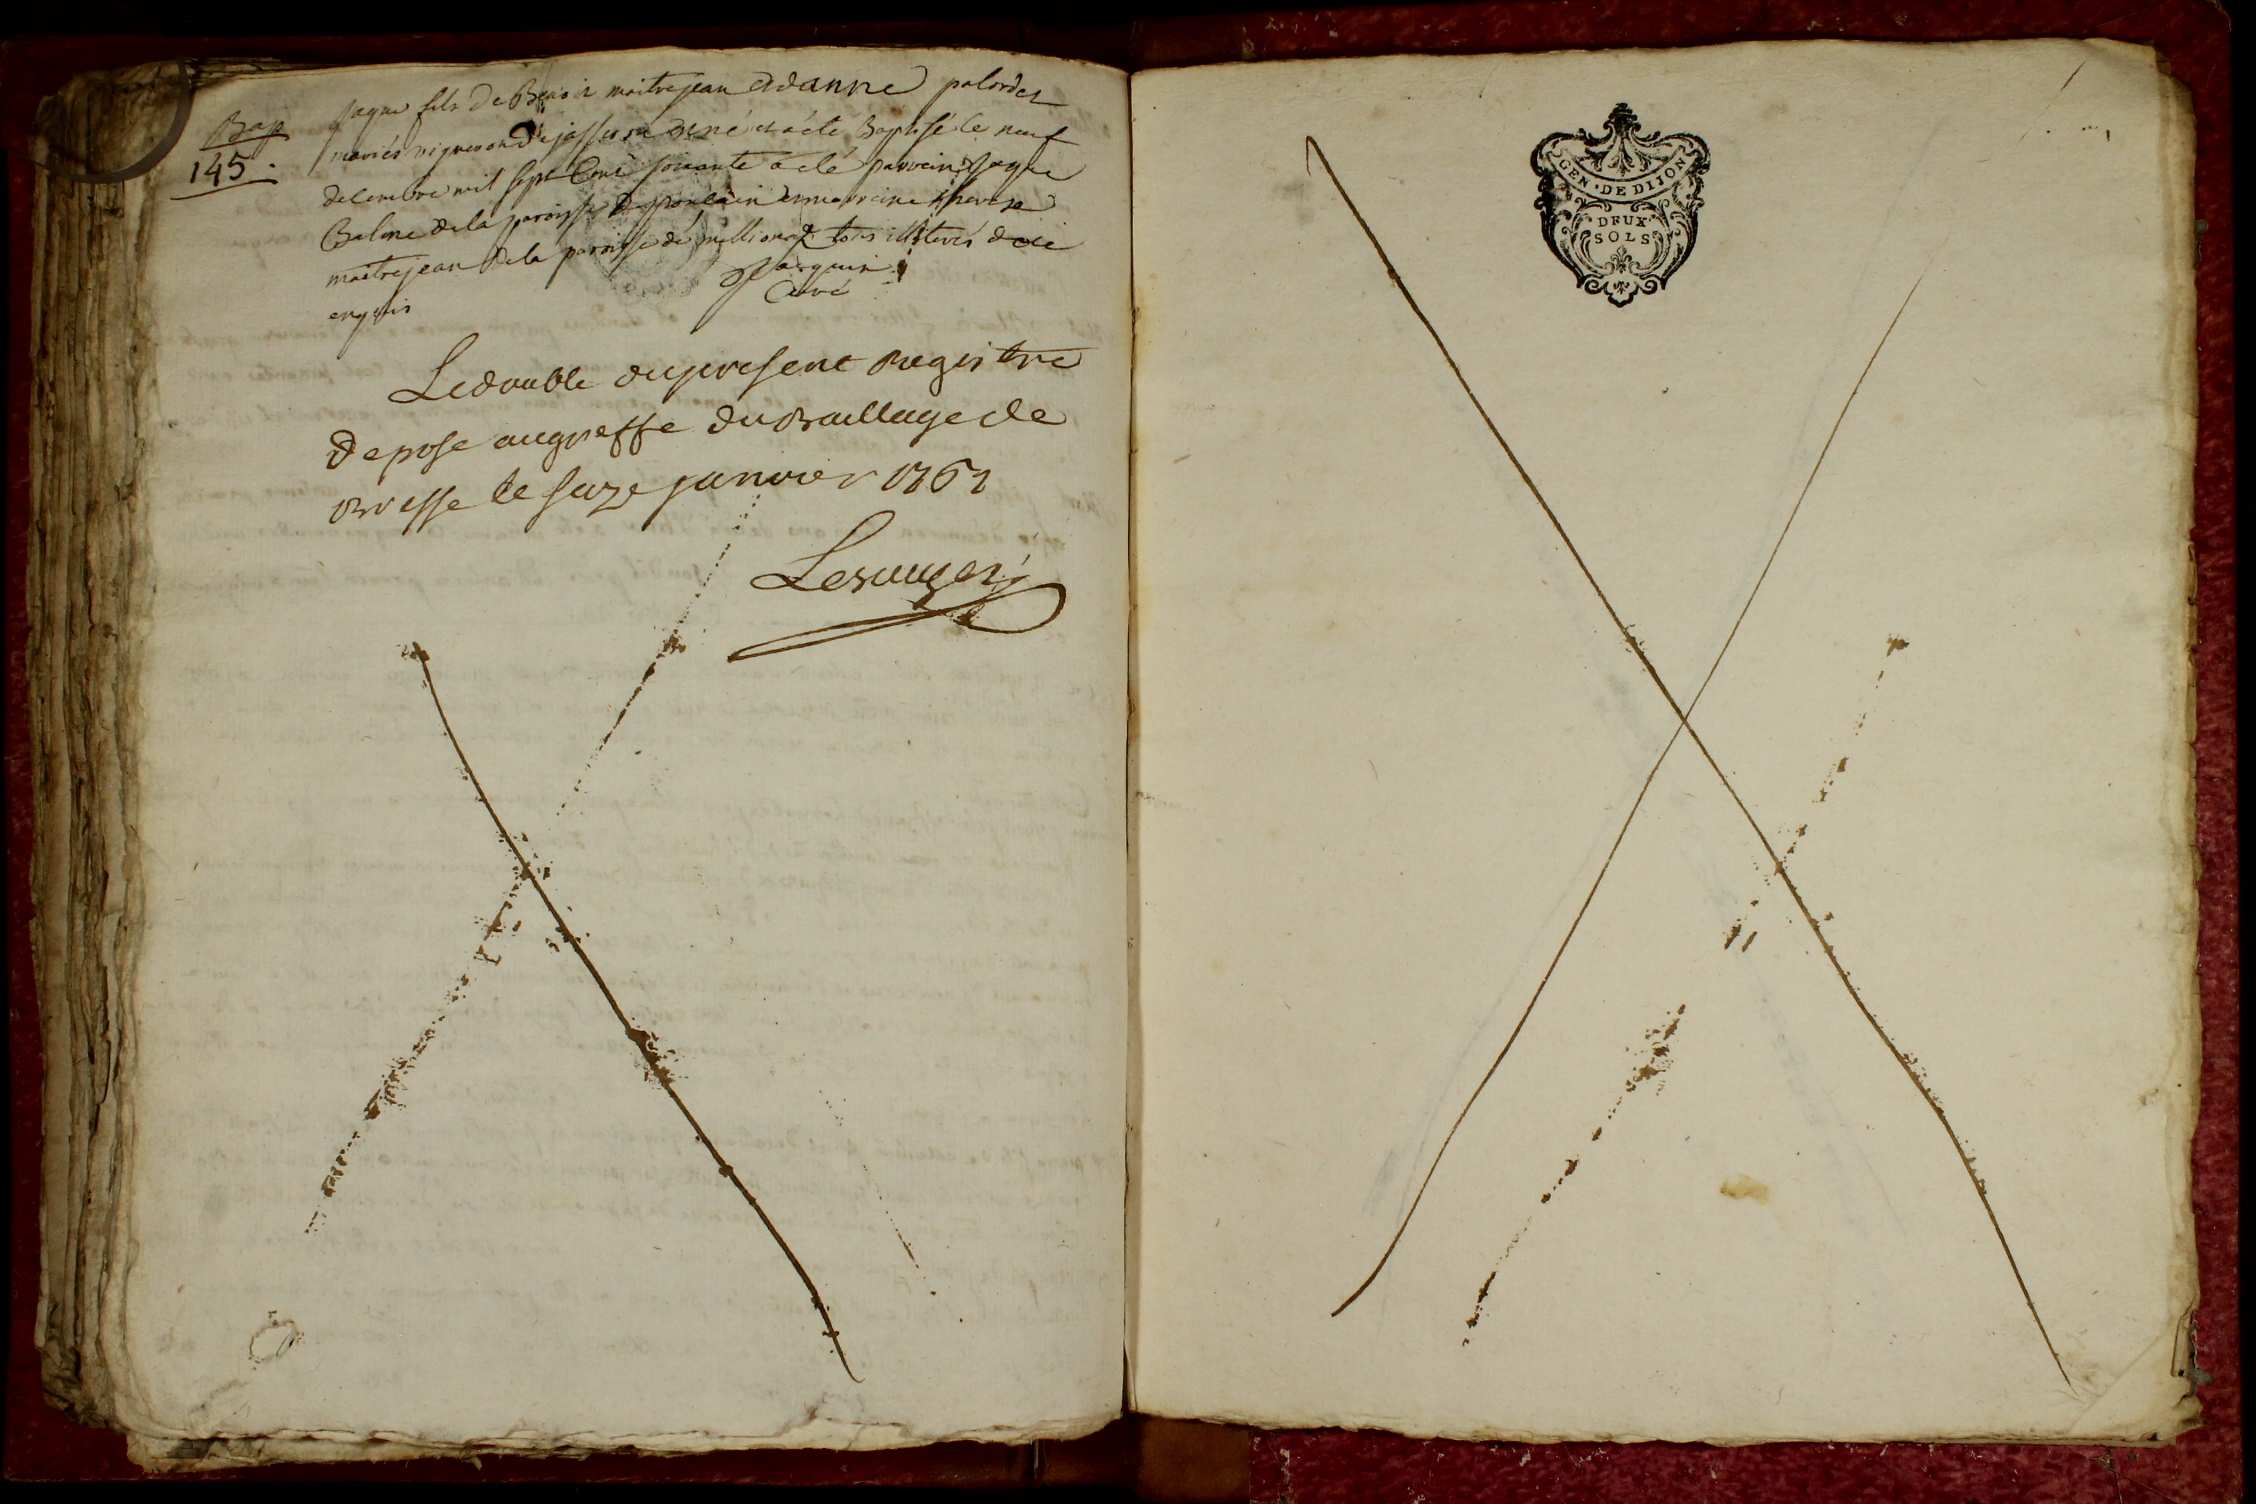 Bap
145.
Jaque fils de Benoit maitrejean et danne palordet
mariés vignerons de jasseron est né et a été Baptisé le neuf
decembre mil sept Cent soixante a été parrein Jaque
Balme de la paroisse de et marreine therese
maitrejean de la paroisse de meillionas tous illiterés de ce
enquis
Jarquin
Curé
Le double du present Registre
depose au greffe du Baillage de
Bresse le seize janvier 1761
GEN · DE DIJON
DEUX
SOLS